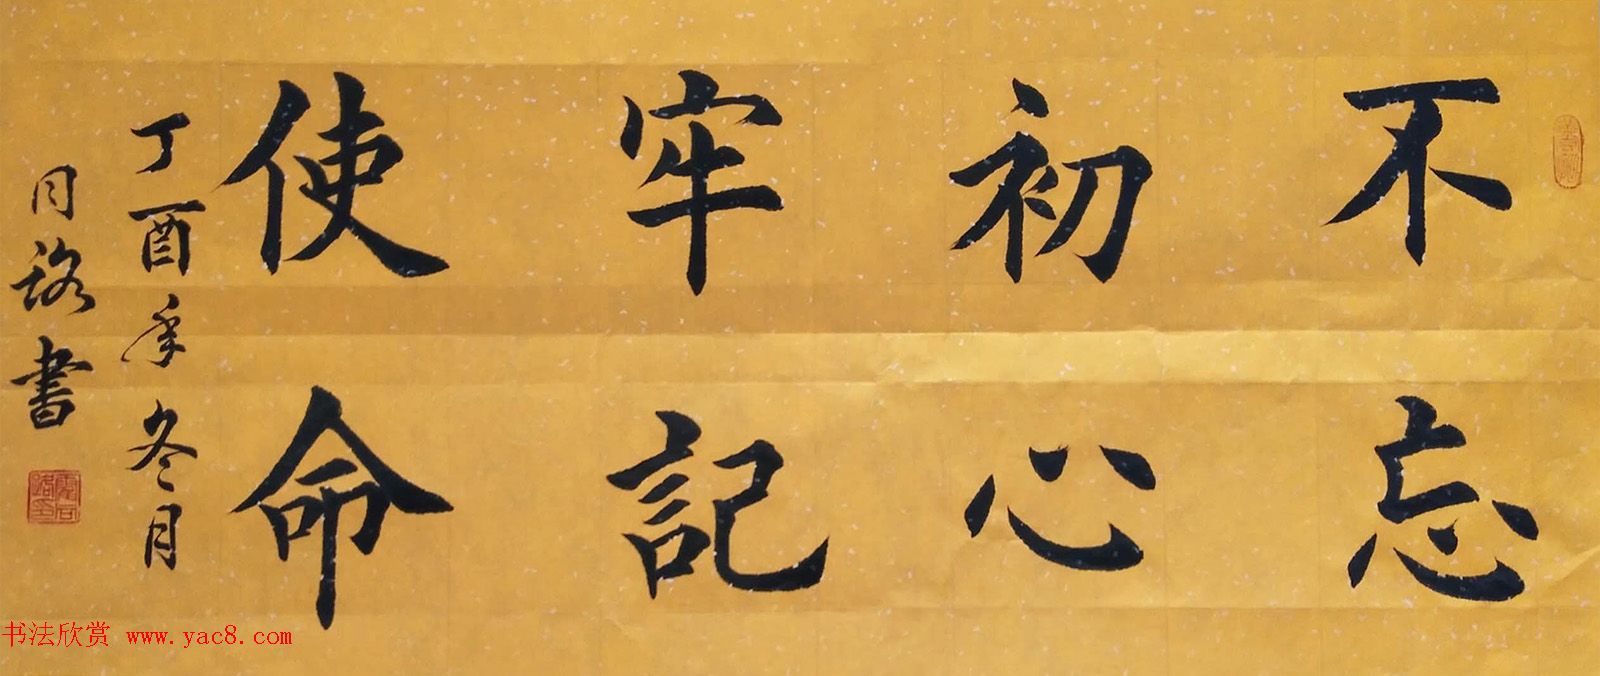 不忘
初心
牢記
使命
丁酉年冬月
同路書
书法欣赏 www.yac8.com